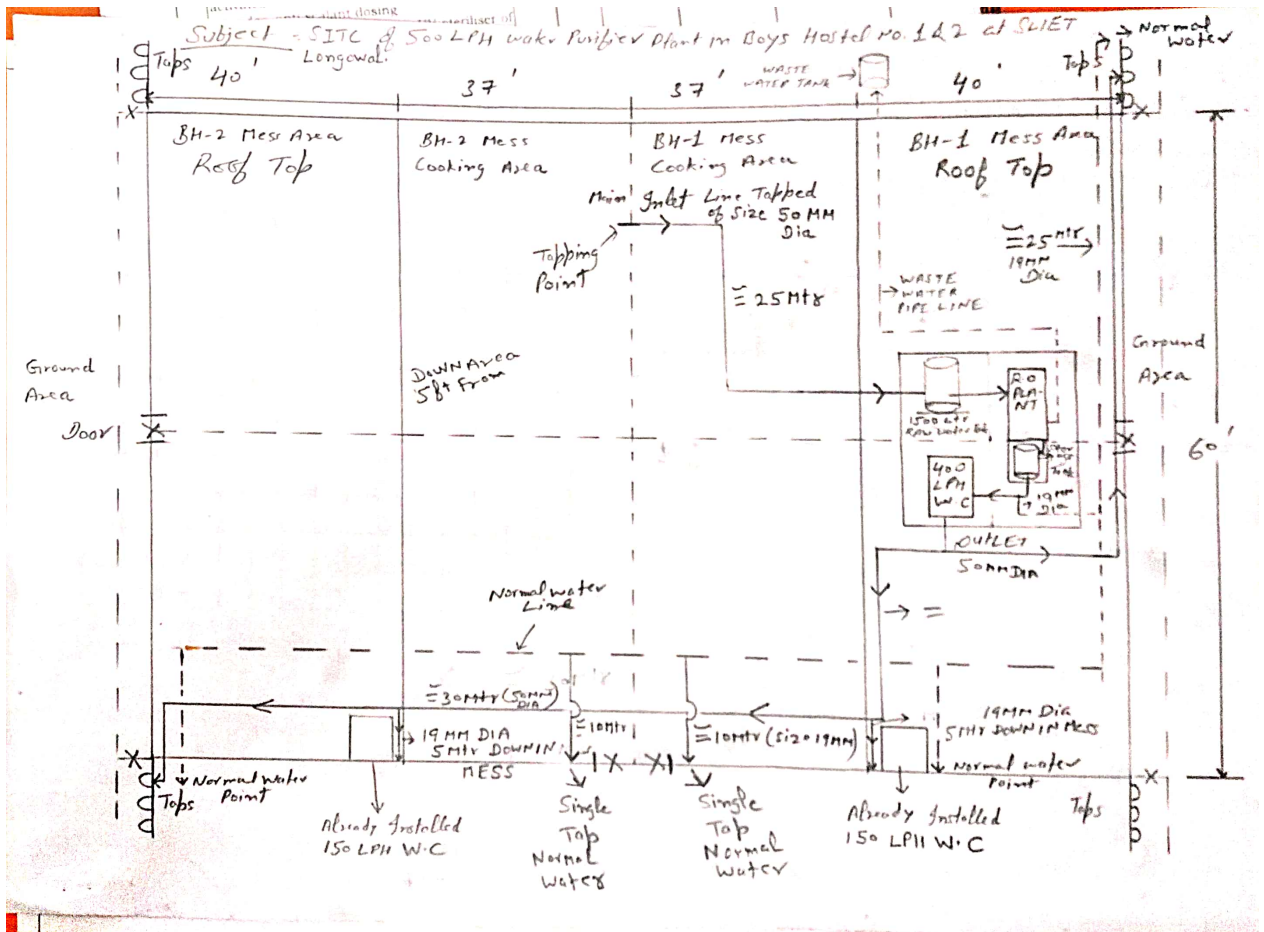 dosing
Subject - SITC of 500 LPH water Purifier Plant in Boys Hostel no. 1&2 at SLIET
Longowal.
Normal
Water
Taps
40'
37'
37'
WASTE
WATER TANK
40'
Taps
BH-2 Mess Area
Roof Top
BH-2 Mess
Cooking Area
BH-1 Mess
Cooking Area
BH-1 Mess Area
Roof Top
Main Inlet Line Tapped
of Size 50 MM
Dia
Topping
Point
≅ 25 Mtr
19 MM
Dia
WASTE
WATER
PIPE LINE
≅ 25 Mtr
Ground
Area
Ground
Area
DOWN Area
5ft From
Door
60'
R.O
PLA-
NT
1500 Ltr
RAW Water
400
LPH
W.C
Tank
19 MM
DIA
OUTLET
50MM DIA
Normal water
Line
≅ 30 Mtr (50MM
DIA)
19 MM DIA
5Mtr DOWN IN
MESS
≅ 10Mtr
≅ 10Mtr (Size 19MM)
19MM Dia
5Mtr DOWN IN Mess
Normal water
Point
Taps
Normal water
Point
Taps
Already Installed
150 LPH W.C
Single
Tap
Normal
Water
Single
Tap
Normal
Water
Already Installed
150 LPH W.C